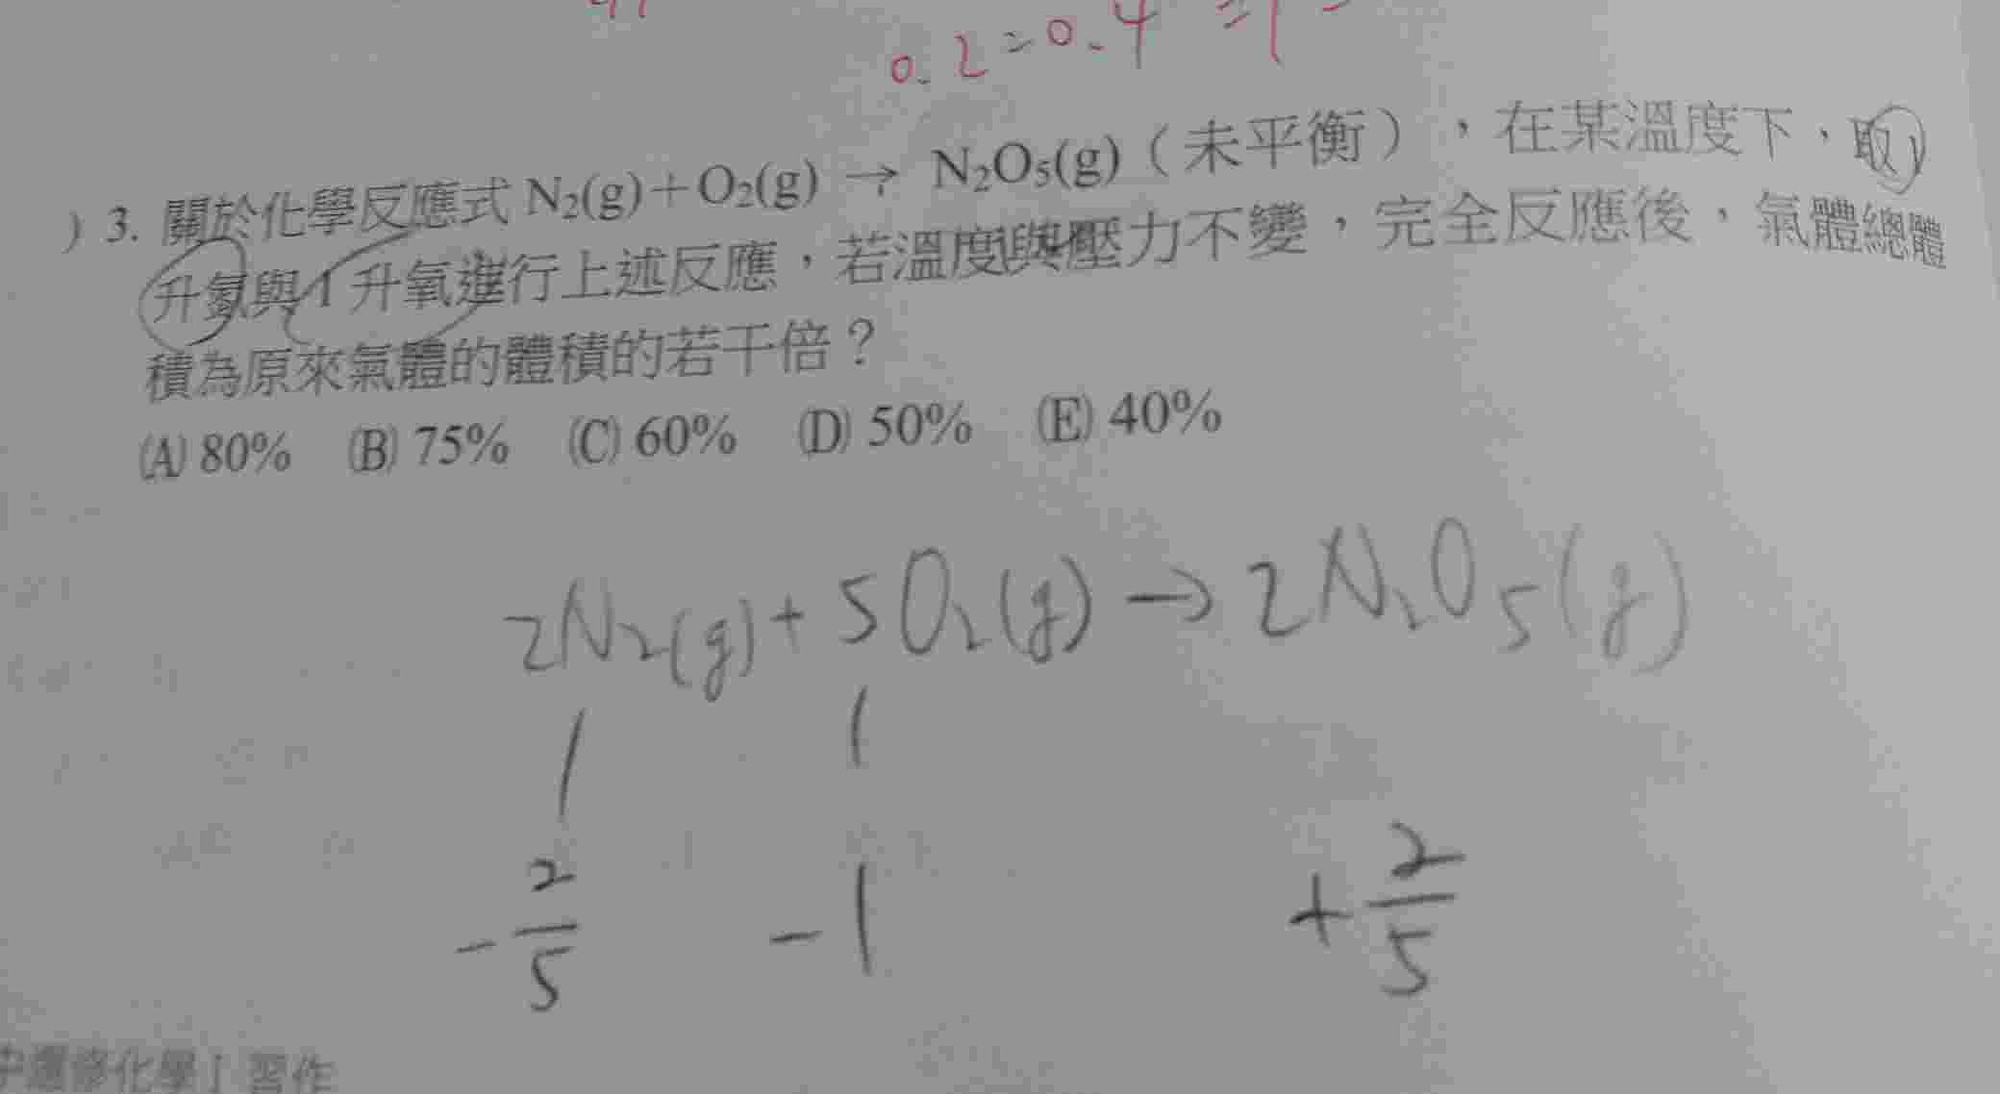 0.2=0.4
) 3. 關於化學反應式 N₂(g)+O₂(g) → N₂O₅(g)（未平衡），在某溫度下，取1
升氮與1升氧進行上述反應，若溫度與壓力不變，完全反應後，氣體總體
積為原來氣體的體積的若干倍？
(A) 80% (B) 75% (C) 60% (D) 50% (E) 40%
2N₂(g)+5O₂(g)→2N₂O₅(g)
1 1
-2/5 -1 +2/5
中選修化學I 習作